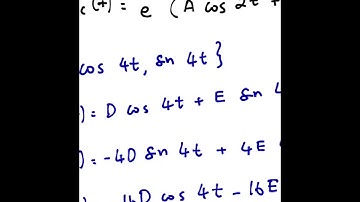 c(t) = e (A cos 2t +
cos 4t, sn 4t}
) = D cos 4t + E sn 4
) = -4D sn 4t + 4E
16D cos 4t - 16E